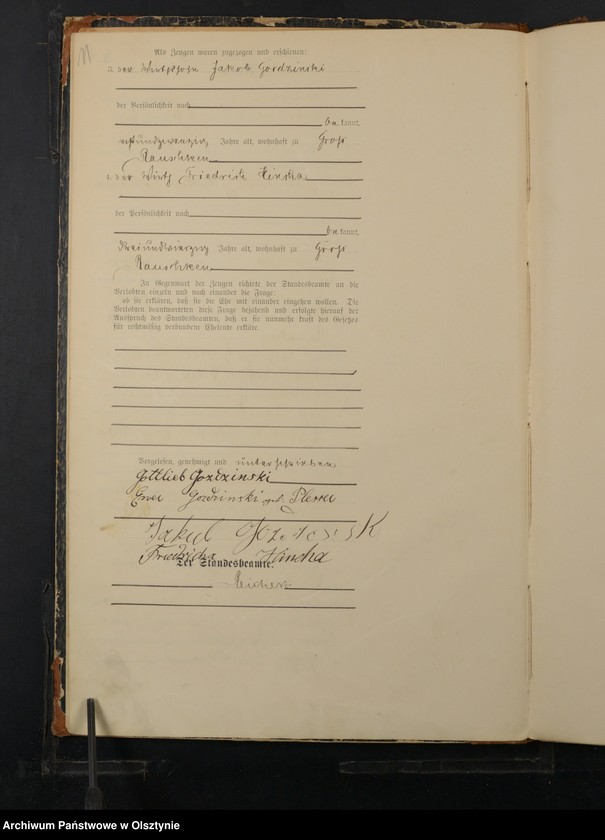 11
Als Zeugen waren zugezogen und erschienen:
3. der Wirtssohn Jakob Gordzinski
der Persönlichkeit nach
bekannt,
Jahre alt, wohnhaft zu Groß
Rauschken
4. der Wirth Friedrich Hincha
der Persönlichkeit nach
bekannt,
dreiundvierzig Jahre alt, wohnhaft zu Groß
Rauschken
In Gegenwart der Zeugen richtete der Standesbeamte an die
Verlobten einzeln und nach einander die Frage:
ob sie erklären, daß sie die Ehe mit einander eingehen wollen. Die
Verlobten beantworteten diese Frage bejahend und erfolgte hierauf der
Ausspruch des Standesbeamten, daß er sie nunmehr kraft des Gesetzes
für rechtmäßig verbundene Eheleute erkläre.
Vorgelesen, genehmigt und unterschrieben
Gottlieb Gozdzinski
Gozdzinski geb. Plewa
Jakub
Friedrich Hincha
Der Standesbeamte.
Archiwum Państwowe w Olsztynie